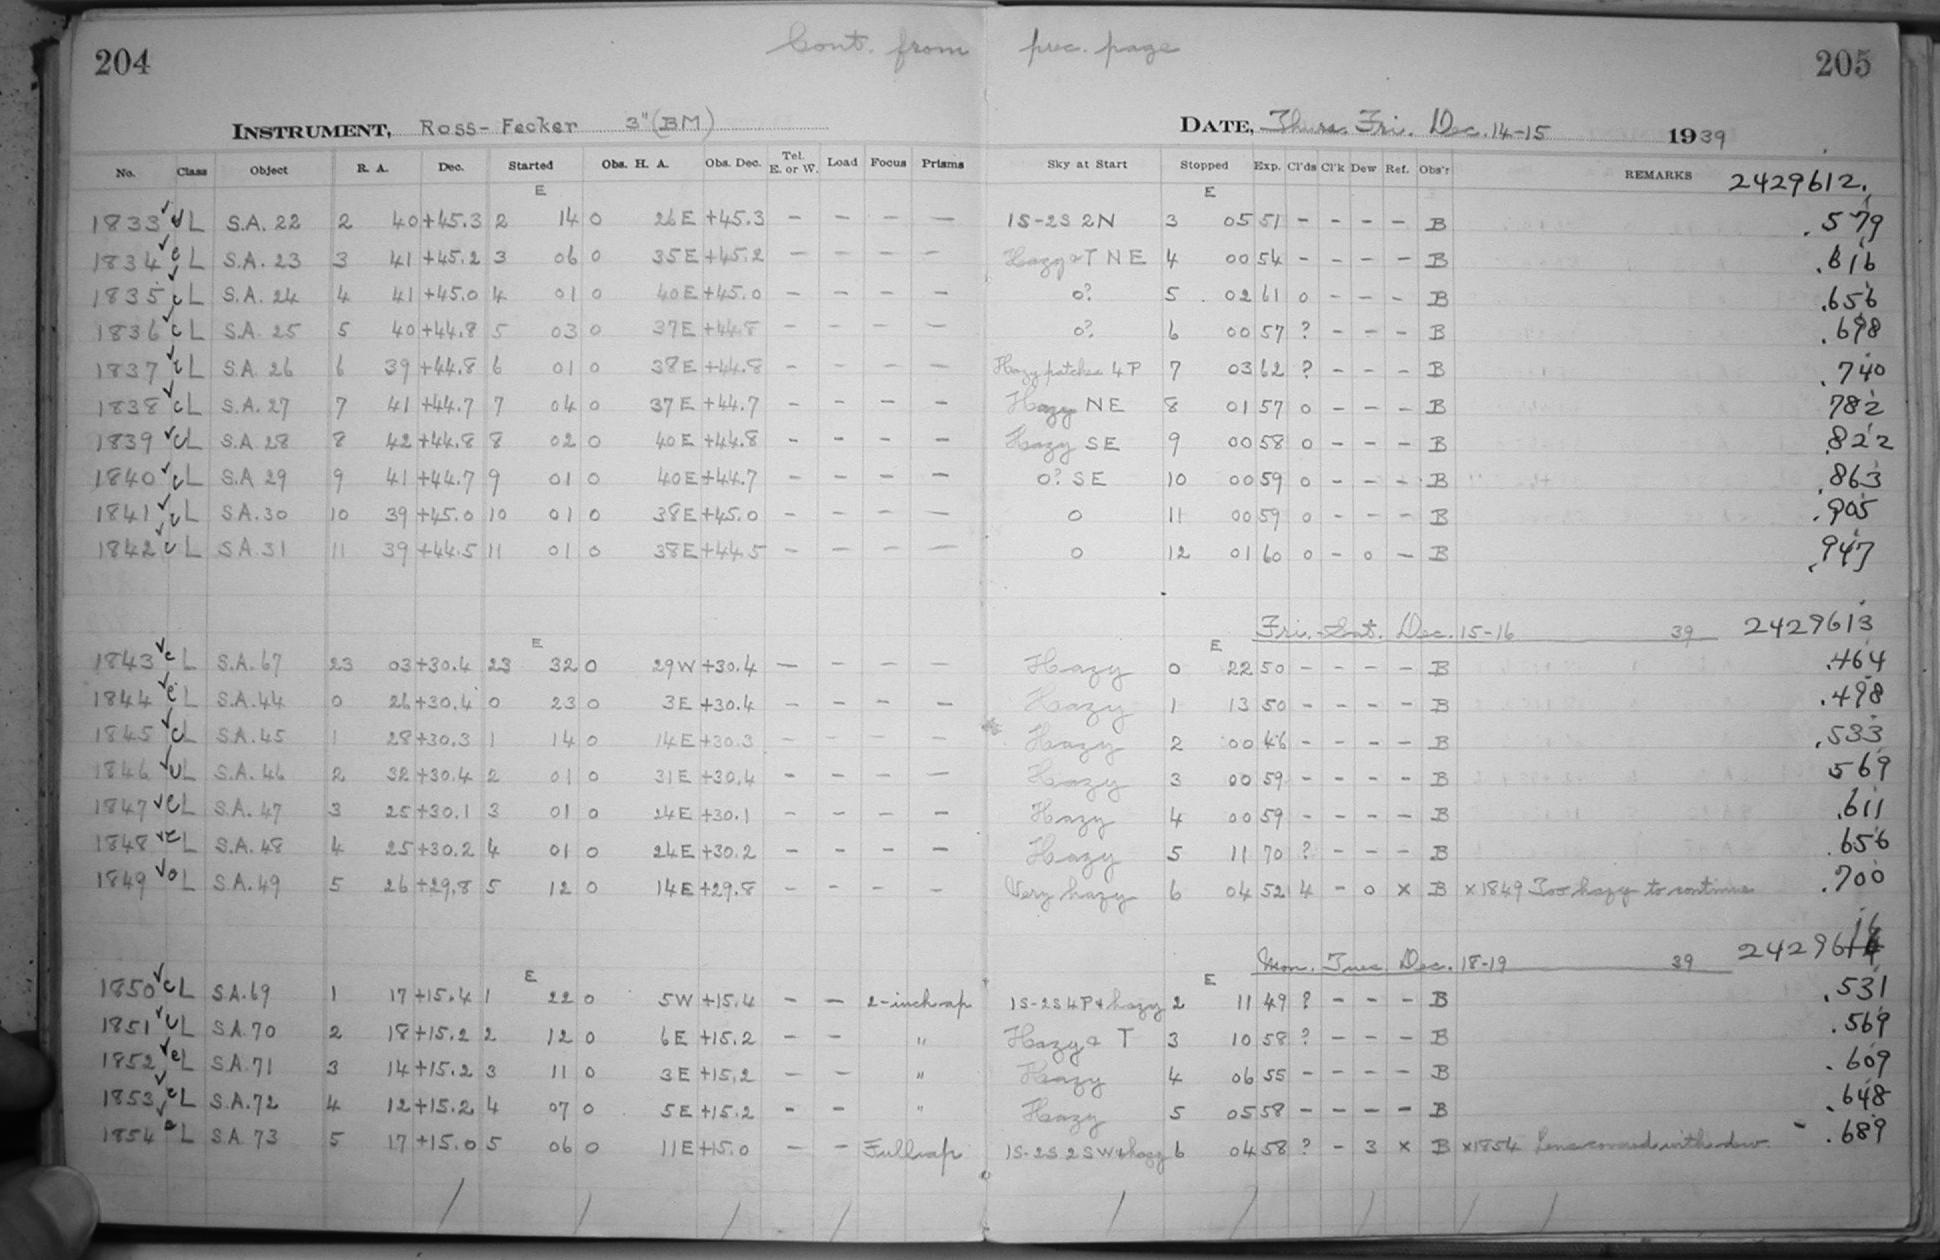 204 Cont. from prec. page 205
INSTRUMENT, Ross-Fecker 3"(BM) DATE, Thurs. Fri. Dec. 14-15 1939
No. Class Object R. A. Dec. Started Obs. H. A. Obs. Dec. Tel. E. or W. Load Focus Prisms Sky at Start Stopped Exp. Cl'ds Cl'k Dew Ref. Obs'r REMARKS 2429612.
E E
1833 L S.A. 22 2 40 +45.3 2 14 0 26E +45.3 - - - - 1S-2S 2N 3 05 51 - - - - B .579
1834 L S.A. 23 3 41 +45.2 3 06 0 35E +45.2 - - - - Hazy & T NE 4 00 54 - - - - B .616
1835 L S.A. 24 4 41 +45.0 4 01 0 40E +45.0 - - - - 0? 5 02 61 0 - - - B .656
1836 cL S.A. 25 5 40 +44.8 5 03 0 37E +44.8 - - - - 0? 6 00 57 ? - - - B .698
1837 L S.A. 26 6 39 +44.8 6 01 0 38E +44.8 - - - - Hazy patches 4P 7 03 62 ? - - - B .740
1838 cL S.A. 27 7 41 +44.7 7 04 0 37E +44.7 - - - - Hazy NE 8 01 57 0 - - - B 782
1839 cL S.A. 28 8 42 +44.8 8 02 0 40E +44.8 - - - - Hazy SE 9 00 58 0 - - - B .822
1840 cL S.A. 29 9 41 +44.7 9 01 0 40E +44.7 - - - - 0? SE 10 00 59 0 - - - B .863
1841 L S.A. 30 10 39 +45.0 10 01 0 38E +45.0 - - - - 0 11 00 59 0 - - - B .905
1842 L S.A. 31 11 39 +44.5 11 01 0 38E +44.5 - - - - 0 12 01 60 0 - 0 - B .947
Fri.-Sat. Dec. 15-16 39 2429613
E E
1843 cL S.A. 67 23 03 +30.4 23 32 0 29W +30.4 - - - - Hazy 0 22 50 - - - - B .464
1844 L S.A. 44 0 26 +30.4 0 23 0 3E +30.4 - - - - Hazy 1 13 50 - - - - B .498
1845 cL S.A. 45 1 28 +30.3 1 14 0 14E +30.3 - - - - Hazy 2 00 46 - - - - B .533
1846 L S.A. 46 2 32 +30.4 2 01 0 31E +30.4 - - - - Hazy 3 00 59 - - - - B 569
1847 cL S.A. 47 3 25 +30.1 3 01 0 24E +30.1 - - - - Hazy 4 00 59 - - - - B .611
1848 L S.A. 48 4 25 +30.2 4 01 0 24E +30.2 - - - - Hazy 5 11 70 ? - - - B .656
1849 L S.A. 49 5 26 +29.8 5 12 0 14E +29.8 - - - - Very hazy 6 04 52 4 - 0 x B x1849 Too hazy to continue .700
Mon. Tues Dec. 18-19 39 2429616
E E
1850 cL S.A. 69 1 17 +15.4 1 22 0 5W +15.4 - - 2-inch ap 1S-2S 4P & hazy 2 11 49 ? - - - B .531
1851 L S.A. 70 2 18 +15.2 2 12 0 6E +15.2 - - " Hazy & T 3 10 58 ? - - - B .569
1852 L S.A. 71 3 14 +15.2 3 11 0 3E +15.2 - - " Hazy 4 06 55 - - - - B .609
1853 cL S.A. 72 4 12 +15.2 4 07 0 5E +15.2 - - " Hazy 5 05 58 - - - - B .648
1854 L S.A. 73 5 17 +15.0 5 06 0 11E +15.0 - - Full ap 1S-2S 2SW & hazy 6 04 58 ? - 3 x B x1854 Lens covered with dew .689